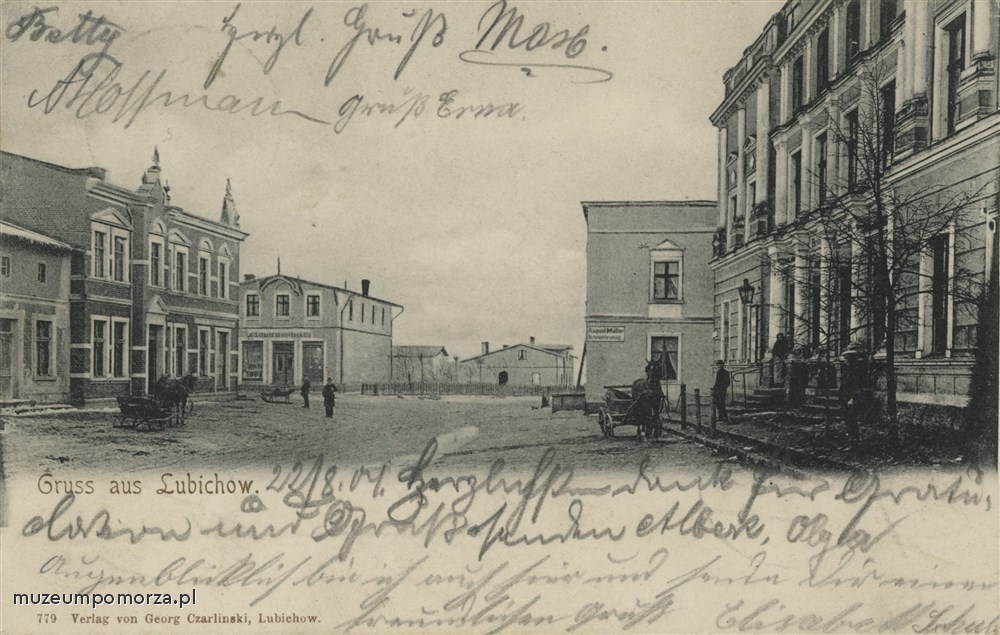 Betty
herzl. Gruß Max.
A. Hoffmann Gruß Erna.
August Müller
Gruss aus Lubichow.
22/8. 01. Herzlichst dank für Gratu-
lation und Gruß senden Albert, Olga
Augenblicklich bin ich auch hier und sende Dir einen
freundlichen Gruß Elisabeth Schul
muzeumpomorza.pl
779 Verlag von Georg Czarlinski, Lubichow.